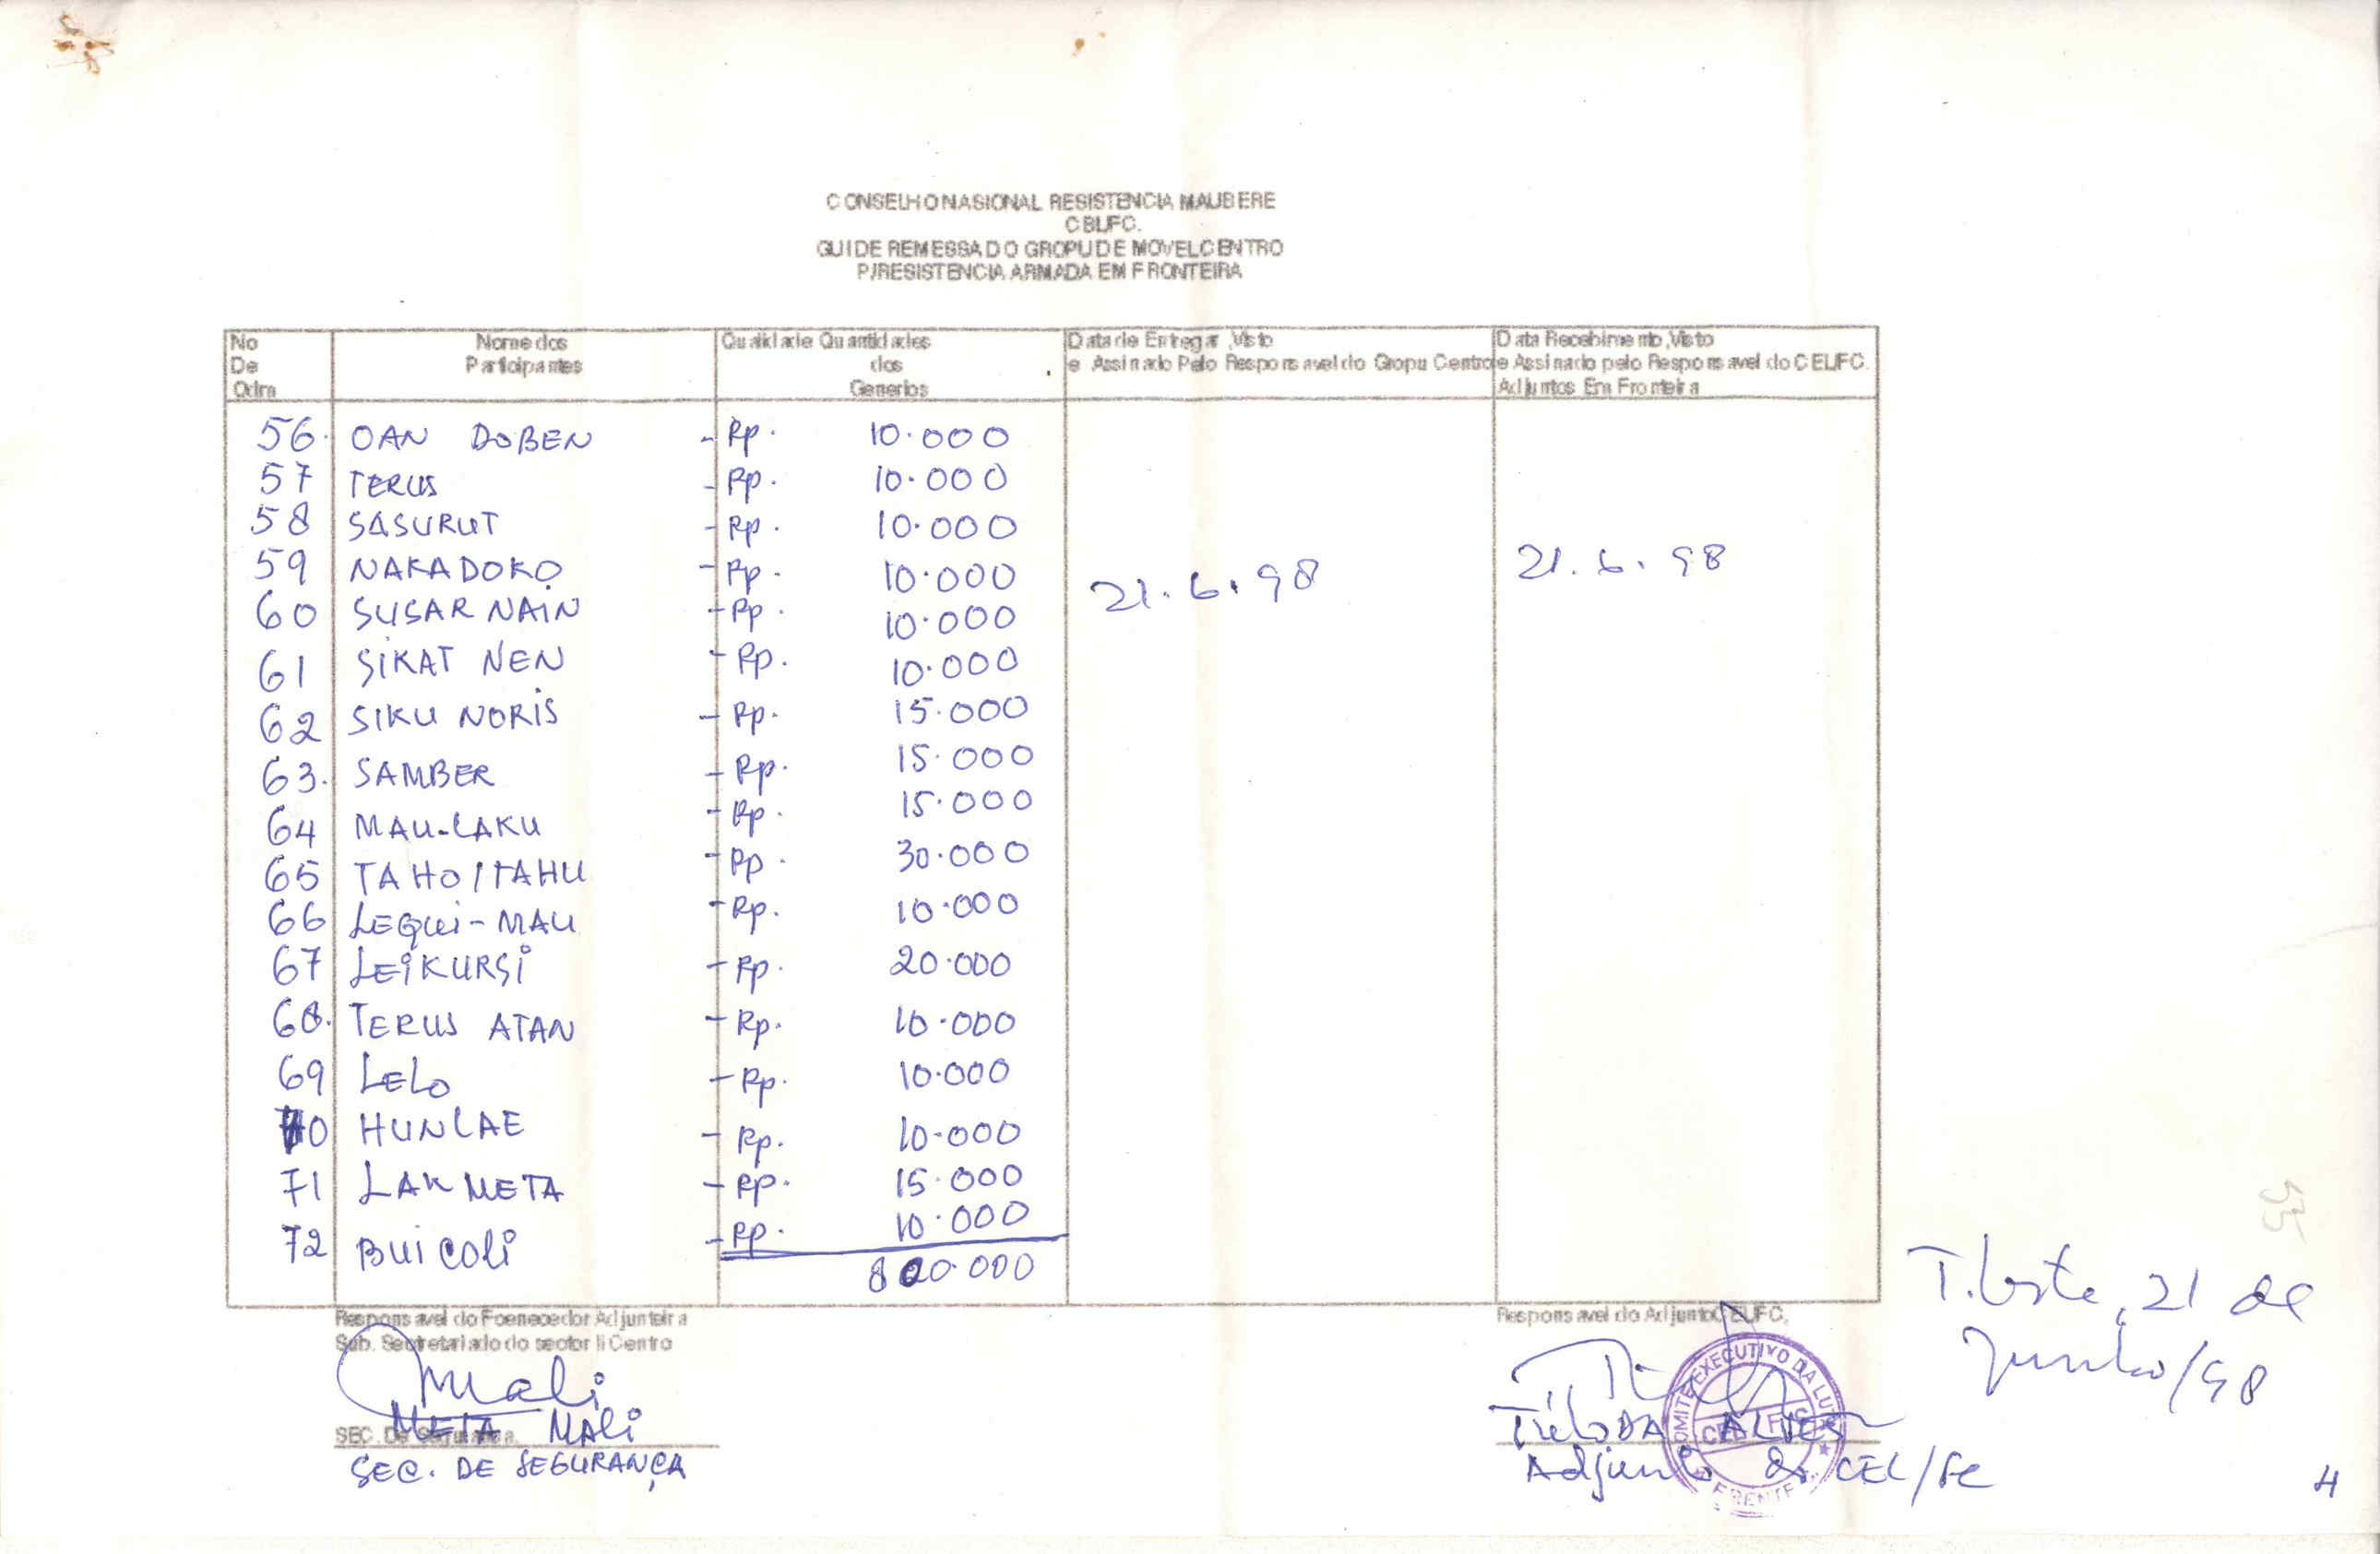 CONSELHO NASIONAL RESISTENCIA MAUBERE
CELFC.
GUI DE REMESSA DO GROPU DE MOVEL CENTRO
P/RESISTENCIA ARMADA EM FRONTEIRA
No De Odra | Nome dos Participantes | Qualidade Quantidades dos Generios | Data de Entegar, Visto e Assinado Pelo Responsavel do Gropu Centro | Data Recebimento, Visto e Assinado pelo Responsavel do CELFC. Adjuntos Em Fronteira
56. OAN DOBEN - Rp. 10.000
57 TERUS - Rp. 10.000
58 SASURUT - Rp. 10.000
59 NAKADOKO - Rp. 10.000 21.6.98 21.6.98
60 SUSAR NAIN - Rp. 10.000
61 SIKAT NEN - Rp. 10.000
62 SIKU NORIS - Rp. 15.000
63. SAMBER - Rp. 15.000
64 MAU-LAKU - Rp. 15.000
65 TAHO/TAHU - Rp. 30.000
66 LEQUI-MAU - Rp. 10.000
67 LEIKURSI - Rp. 20.000
68. TERUS ATAN - Rp. 10.000
69 LELO - Rp. 10.000
70 HUNLAE - Rp. 10.000
71 LAK META - Rp. 15.000
72 BUICOLI - Rp. 10.000
800.000
T. Leste, 21 de
Junho/98
Responsavel do Foenecedor Adjunteira
Sub. Secretariado do sector li Centro
Mali
META MALI
SEC. De Seguransa.
SEC. DE SEGURANÇA
Responsavel do Adjunto CELFC,
COMITE EXECUTIVO DA LUTA
FRENTE
ALVES
Adjunto do CEL/FC
55
4